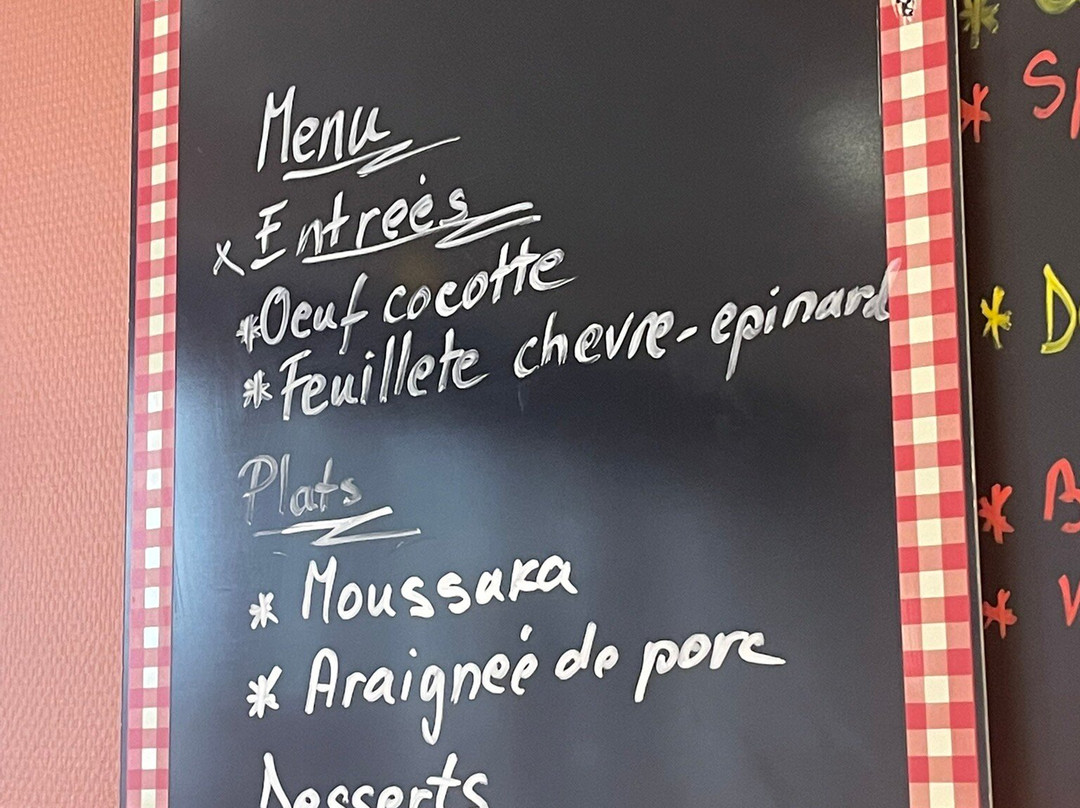 Menu
x Entreés
* Oeuf cocotte
* Feuillete chevre-epinard
Plats
* Moussaka
* Araigneé de porc
Desserts